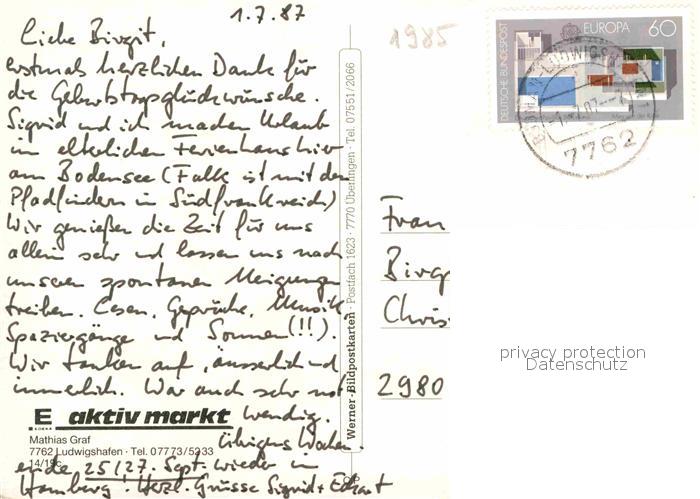 1.7.87
Liebe Birgit,
erstmals herzlichen Dank für
die Geburtstagsglückwünsche.
Sigrid und ich machen Urlaub
im elterlichen Ferienhaus hier
am Bodensee (Falk ist mit den
Pfadfindern in Südfrankreich)
Wir genießen die Zeit für uns
allein sehr und lassen uns nach
unseren spontanen Neigungen
treiben. Lesen, Gespräche, Musik,
Spaziergänge und Sonnen(!!).
Wir tanken auf, äusserlich und
innerlich. War auch sehr not
wendig.
Übrigens Wochen-
ende 25/27. Sept. wieder in
Hamburg. Herzl. Grüsse Sigrid + Eckart
E aktiv markt
EDEKA
Mathias Graf
7762 Ludwigshafen · Tel. 07773/5233
14/19c
Werner-Bildpostkarten · Postfach 1623 · 7770 Überlingen · Tel. 07551/2066
1985
DEUTSCHE BUNDESPOST
EUROPA 60
7762
Frau
Birg
Chris
2980
privacy protection
Datenschutz